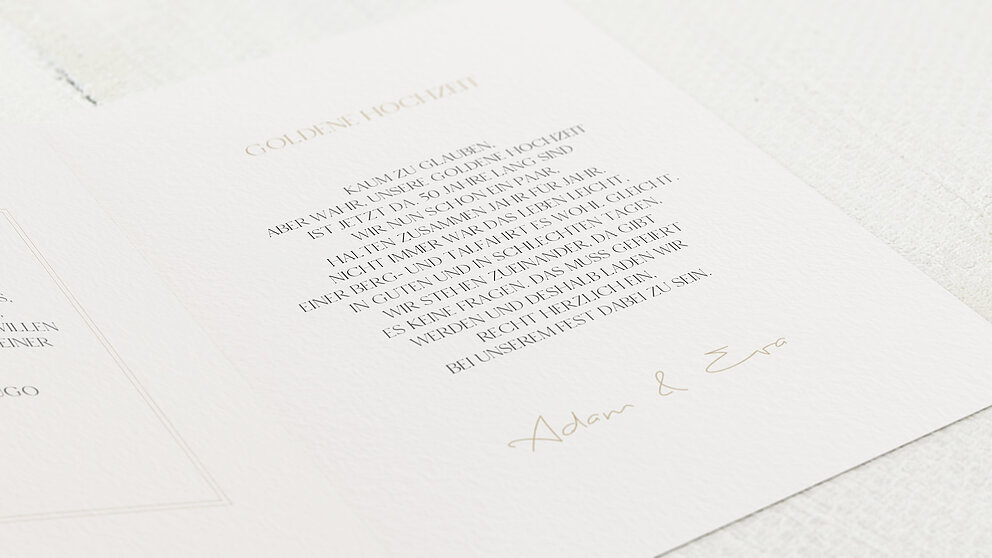 S,
WILLEN
EINER
UGO
GOLDENE HOCHZEIT
KAUM ZU GLAUBEN,
ABER WAHR, UNSERE GOLDENE HOCHZEIT
IST JETZT DA. 50 JAHRE LANG SIND
WIR NUN SCHON EIN PAAR,
HALTEN ZUSAMMEN JAHR FÜR JAHR.
NICHT IMMER WAR DAS LEBEN LEICHT,
EINER BERG- UND TALFAHRT ES WOHL GLEICHT.
IN GUTEN UND IN SCHLECHTEN TAGEN,
WIR STEHEN ZUEINANDER, DA GIBT
ES KEINE FRAGEN. DAS MUSS GEFEIERT
WERDEN UND DESHALB LADEN WIR
RECHT HERZLICH EIN,
BEI UNSEREM FEST DABEI ZU SEIN.
Adam & Eva